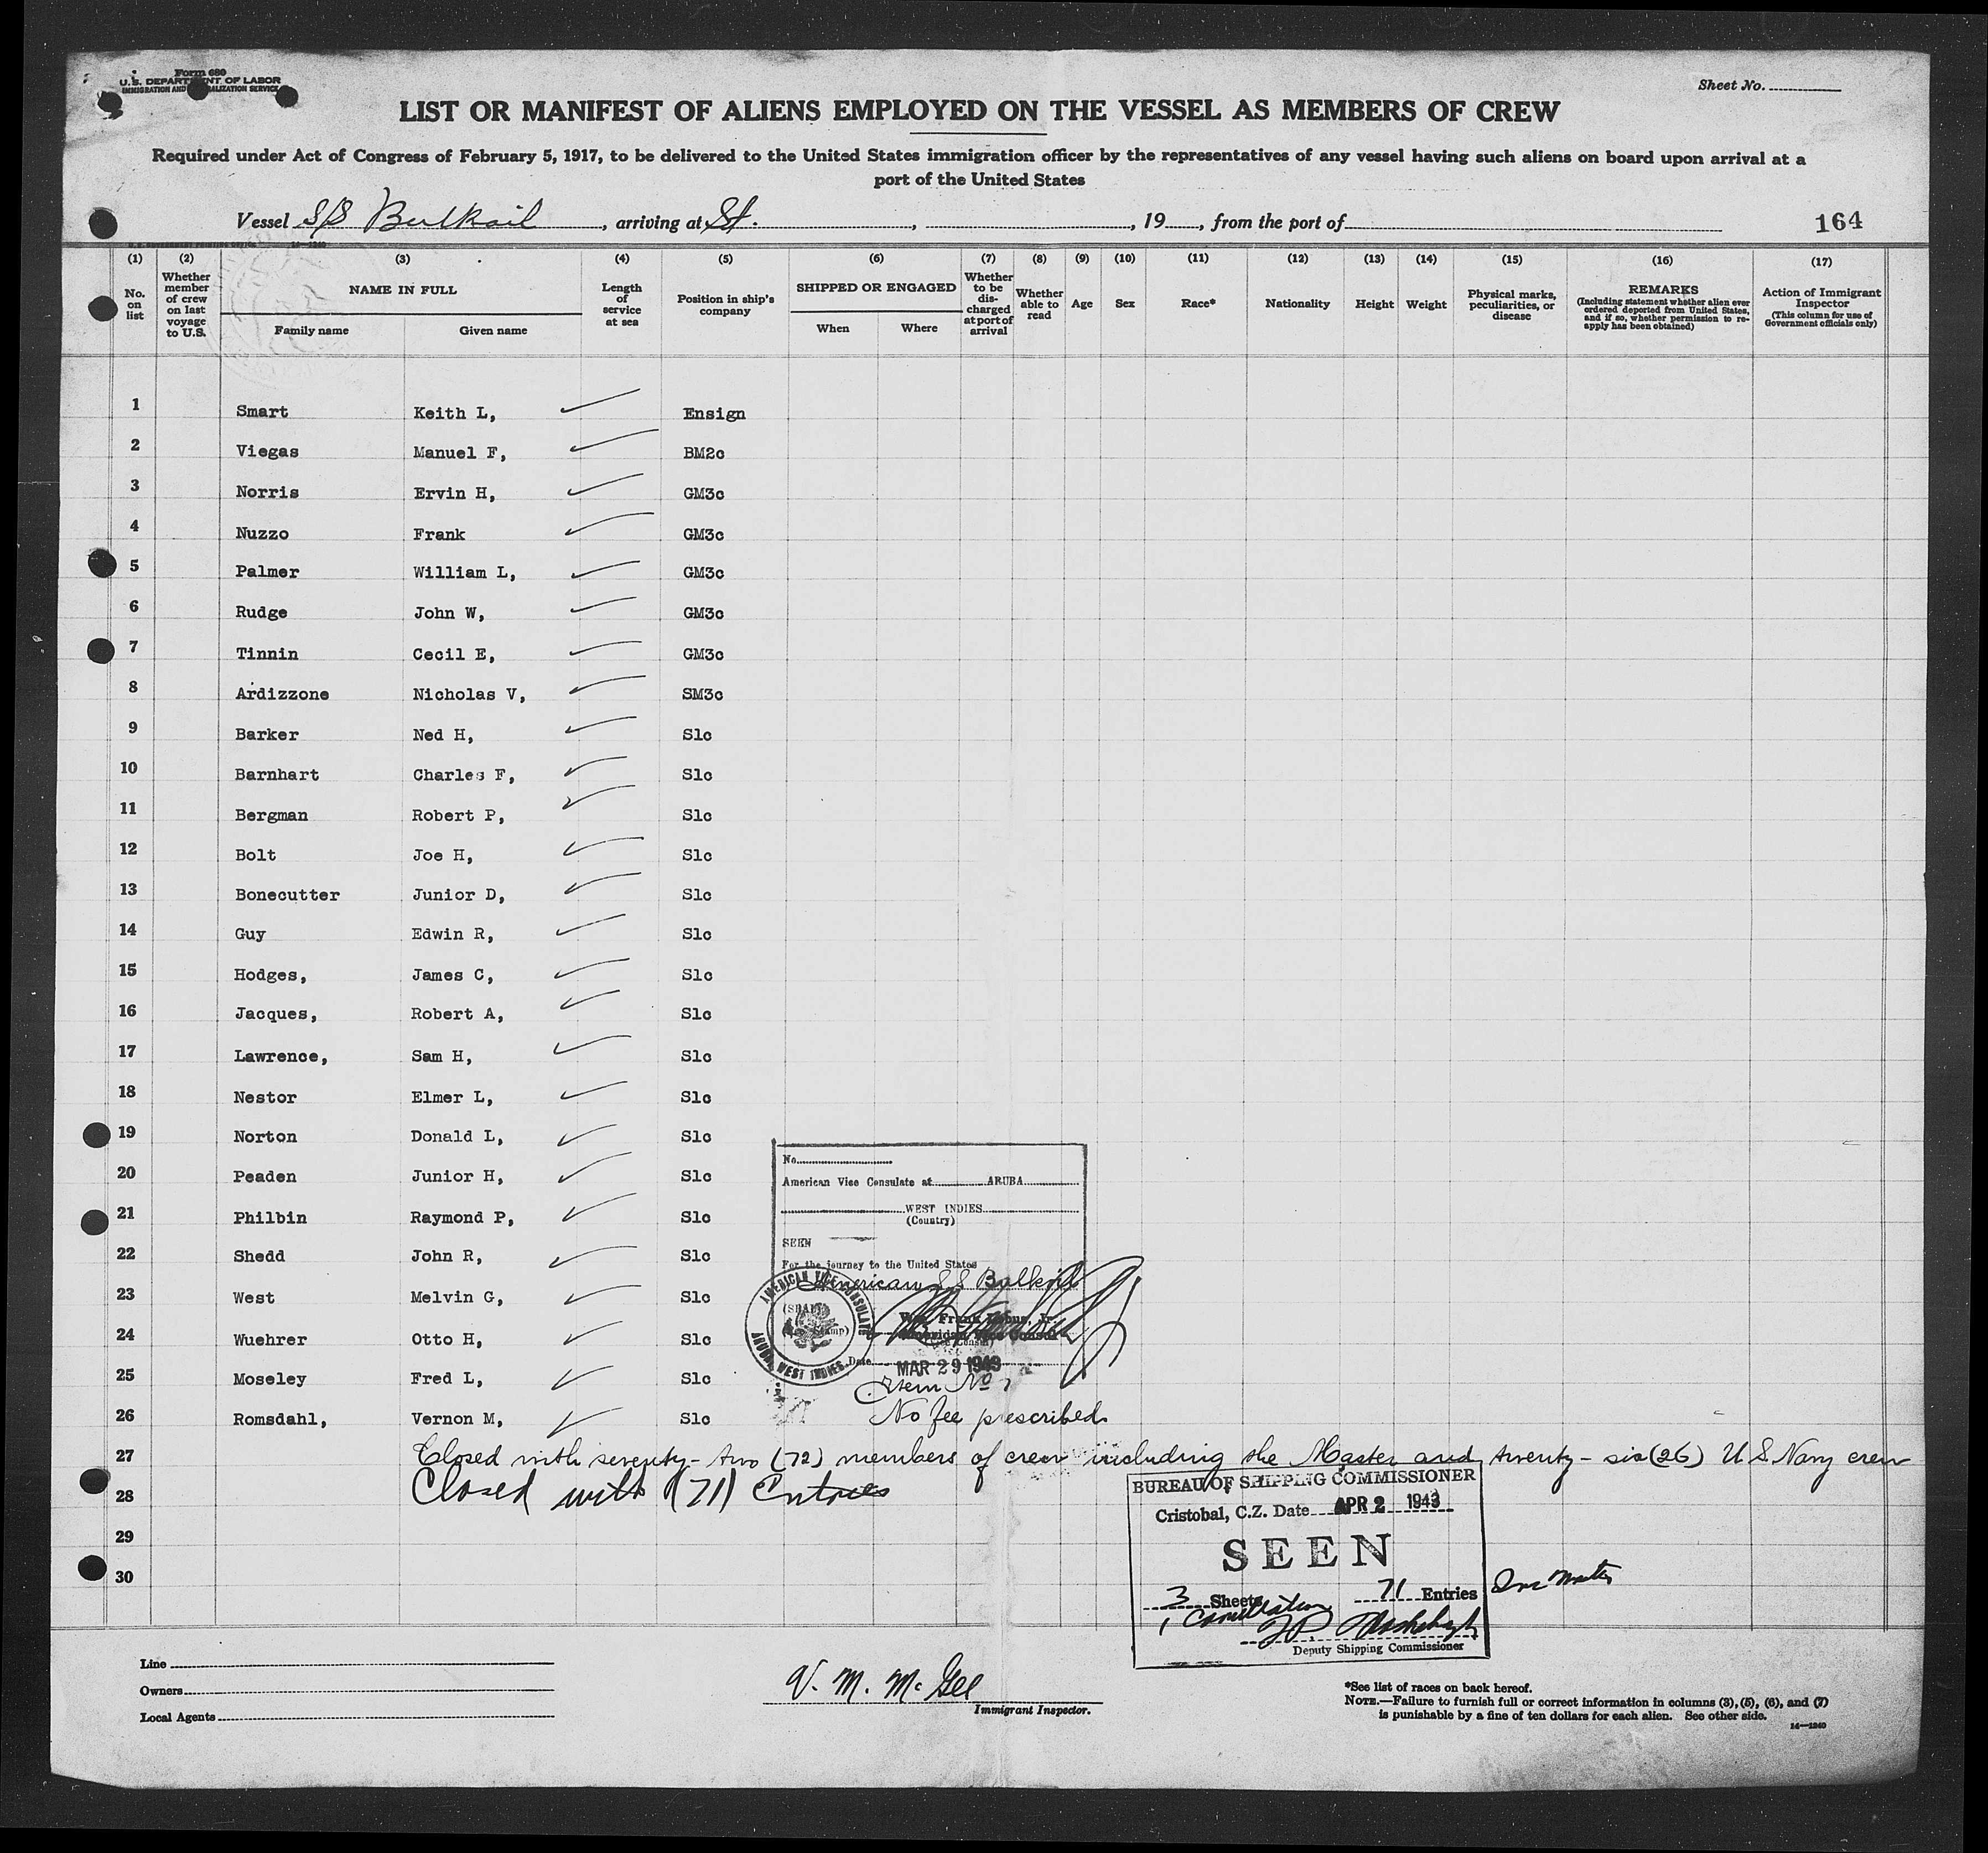 Form 680
U. S. DEPARTMENT OF LABOR
IMMIGRATION AND NATURALIZATION SERVICE
Sheet No.
LIST OR MANIFEST OF ALIENS EMPLOYED ON THE VESSEL AS MEMBERS OF CREW
Required under Act of Congress of February 5, 1917, to be delivered to the United States immigration officer by the representatives of any vessel having such aliens on board upon arrival at a
port of the United States
Vessel S/S Bulkoil, arriving at St., , 19, from the port of 164
(1) (2) (3) (4) (5) (6) (7) (8) (9) (10) (11) (12) (13) (14) (15) (16) (17)
No. on list
Whether member of crew on last voyage to U.S.
NAME IN FULL
Family name Given name
Length of service at sea
Position in ship's company
SHIPPED OR ENGAGED
When Where
Whether to be discharged at port of arrival
Whether able to read
Age
Sex
Race*
Nationality
Height
Weight
Physical marks, peculiarities, or disease
REMARKS
(Including statement whether alien ever ordered deported from United States, and if so, whether permission to re-apply has been obtained)
Action of Immigrant Inspector
(This column for use of Government officials only)
1 Smart Keith L, Ensign
2 Viegas Manuel F, BM2c
3 Norris Ervin H, GM3c
4 Nuzzo Frank GM3c
5 Palmer William L, GM3c
6 Rudge John W, GM3c
7 Tinnin Cecil E, GM3c
8 Ardizzone Nicholas V, SM3c
9 Barker Ned H, S1c
10 Barnhart Charles F, S1c
11 Bergman Robert P, S1c
12 Bolt Joe H, S1c
13 Bonecutter Junior D, S1c
14 Guy Edwin R, S1c
15 Hodges, James C, S1c
16 Jacques, Robert A, S1c
17 Lawrence, Sam H, S1c
18 Nestor Elmer L, S1c
19 Norton Donald L, S1c
20 Peaden Junior H, S1c
21 Philbin Raymond P, S1c
22 Shedd John R, S1c
23 West Melvin G, S1c
24 Wuehrer Otto H, S1c
25 Moseley Fred L, S1c
26 Romsdahl, Vernon M, S1c
No.
American Vice Consulate at ARUBA
WEST INDIES
(Country)
SEEN
For the journey to the United States
American S.S Bulkoil
AMERICAN VICE CONSULATE
ARUBA, WEST INDIES
(SEAL)
American Vice Consul
Date MAR 29 1943
Item No 7
No fee prescribed.
27 Closed with seventy-two (72) members of crew including the Master and twenty-six (26) U.S. Navy crew
28 Closed with (71) Entries
29
30
BUREAU OF SHIPPING COMMISSIONER
Cristobal, C.Z. Date APR 2 1943
SEEN
3 Sheets 71 Entries
1 Cancellation
Deputy Shipping Commissioner
Line
Owners
Local Agents
V. M. McGee
Immigrant Inspector.
*See list of races on back hereof.
NOTE.—Failure to furnish full or correct information in columns (3), (5), (6), and (7)
is punishable by a fine of ten dollars for each alien. See other side.
14—1240